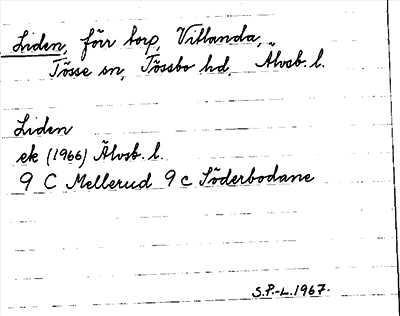 Liden, förr torp, Vitlanda,
Tösse sn, Tössbo hd, Älvsb. l.
Liden
ek (1966) Älvsb. l.
9 C Mellerud 9 c Söderbodane
S.P.-L. 1967.